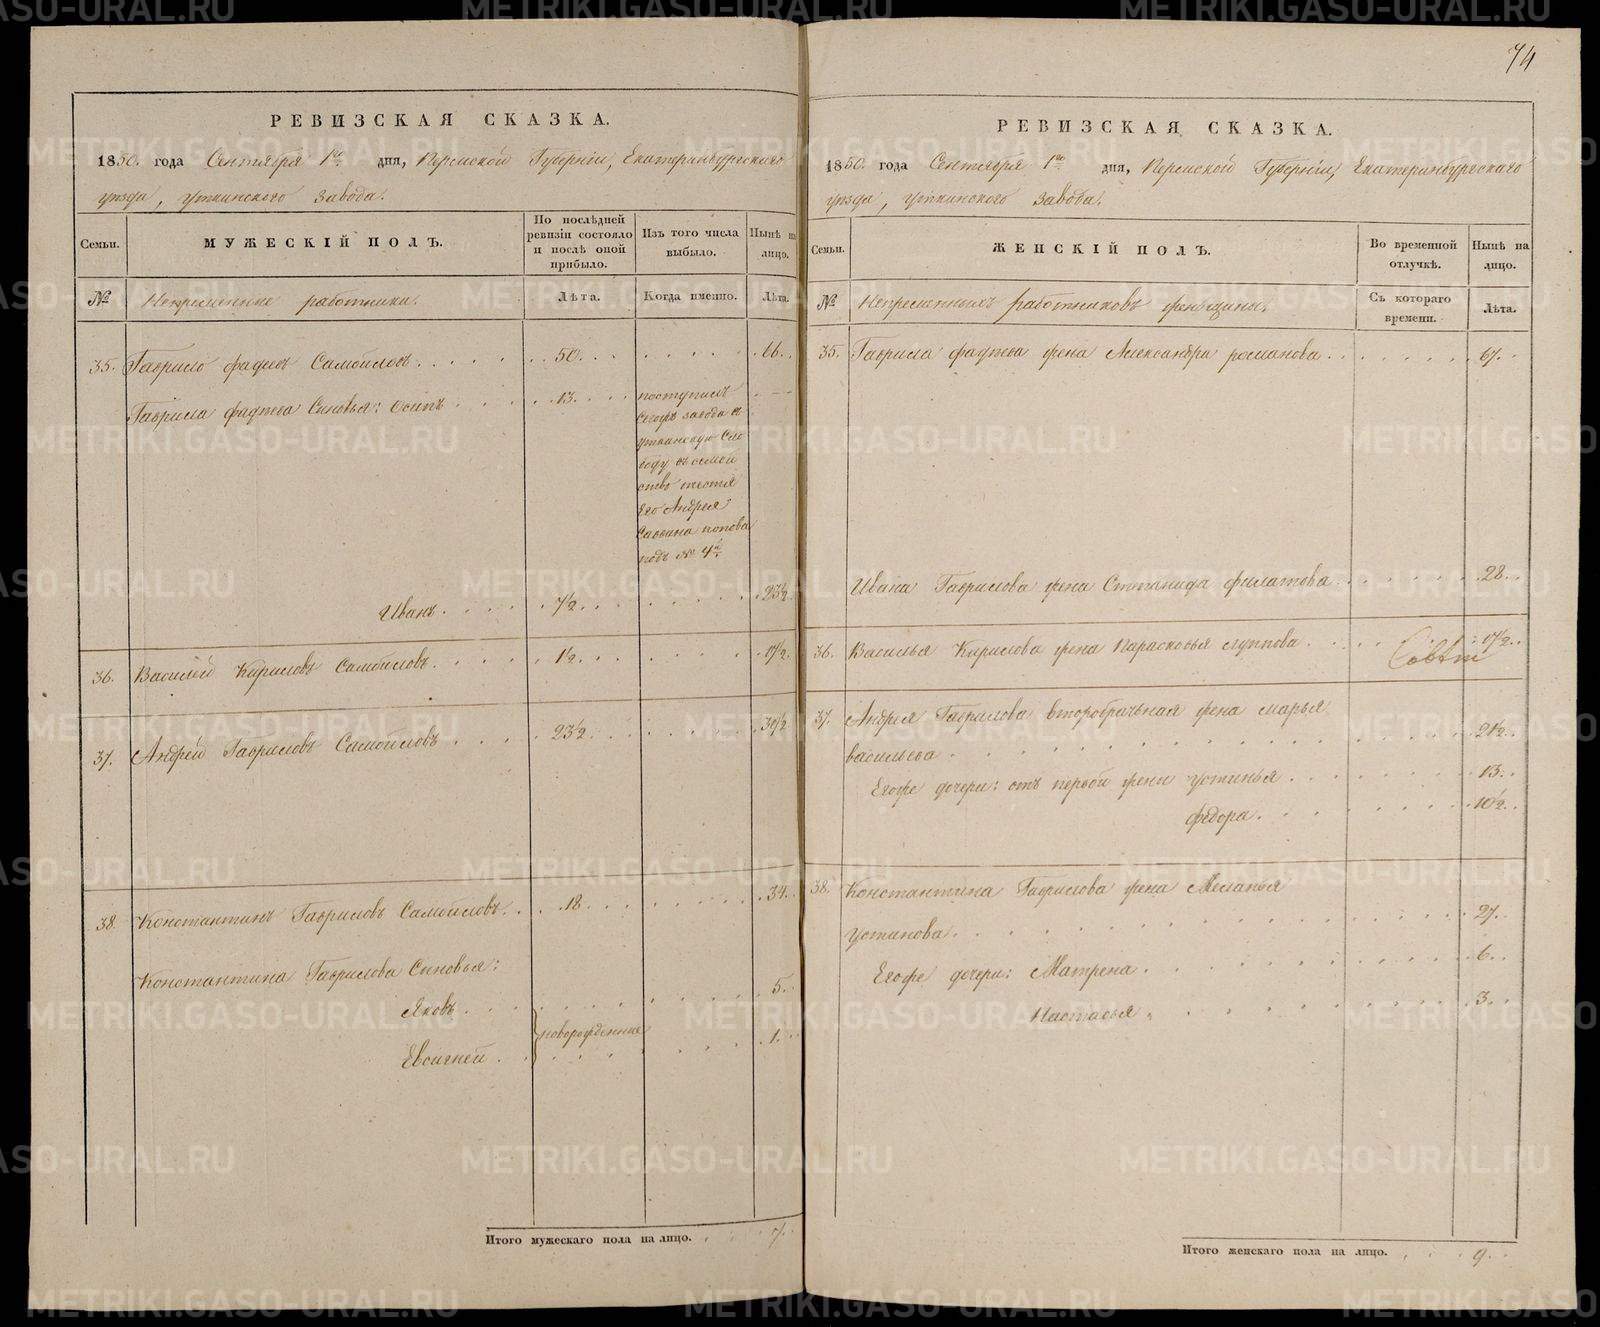 74
РЕВИЗСКАЯ СКАЗКА.
1850. года Сентября 1го дня, Пермской Губернiи, Екатеринбургскаго
уезда, Уткинского Завода.
Семьи.
МУЖЕСКIЙ ПОЛЪ.
По послѣдней ревизiи состояло и послѣ оной прибыло.
Изъ того числа выбыло.
Нынѣ на лицо.
№
Непременные работники.
Лѣта.
Когда именно.
Лѣта.
35. Гаврило Фадеевъ Самойловъ 50. 66.
Гаврила Фадѣева Сыновья: Осипъ 13. поступилъ
завода в
уткинскую Сло
боду съ семей
ство
его Андрея
Саввина попова
подъ № 4й
Иванъ 7½ 23½
36. Василей Кириловъ Самойловъ 1½ 17½
37. Андрей Гавриловъ Самойловъ 23½ 39½
38. Константинъ Гавриловъ Самойловъ 18 34.
Константина Гаврилова Сыновья:
Яковъ 5.
новорожденные
Евсигней 1.
Итого мужескаго пола на лицо. 7.
РЕВИЗСКАЯ СКАЗКА.
1850. года Сентября 1го дня, Пермской Губернiи, Екатеринбургскаго
уезда, Уткинского Завода.
Семьи.
ЖЕНСКIЙ ПОЛЪ.
Во временной отлучкѣ.
Нынѣ на лицо.
№
Непременныхъ работниковъ женщины.
Съ котораго времени.
Лѣта.
35. Гаврила Фадѣева жена Александра романова 67.
Ивана Гаврилова жена Степанида филатова 28.
36. Василья Кирилова жена Парасковья луппова 17½
37. Андрея Гаврилова второбрачная жена марья
васильева 21½
Егоже дочери: отъ первой жены устинья 13.
федора 10½
38. Константина Гаврилова жена Меланья
Устинова 27.
Егоже дочери: Матрена 6.
Настасья 3.
Итого женскаго пола на лицо. 9.
METRIKI.GASO-URAL.RU